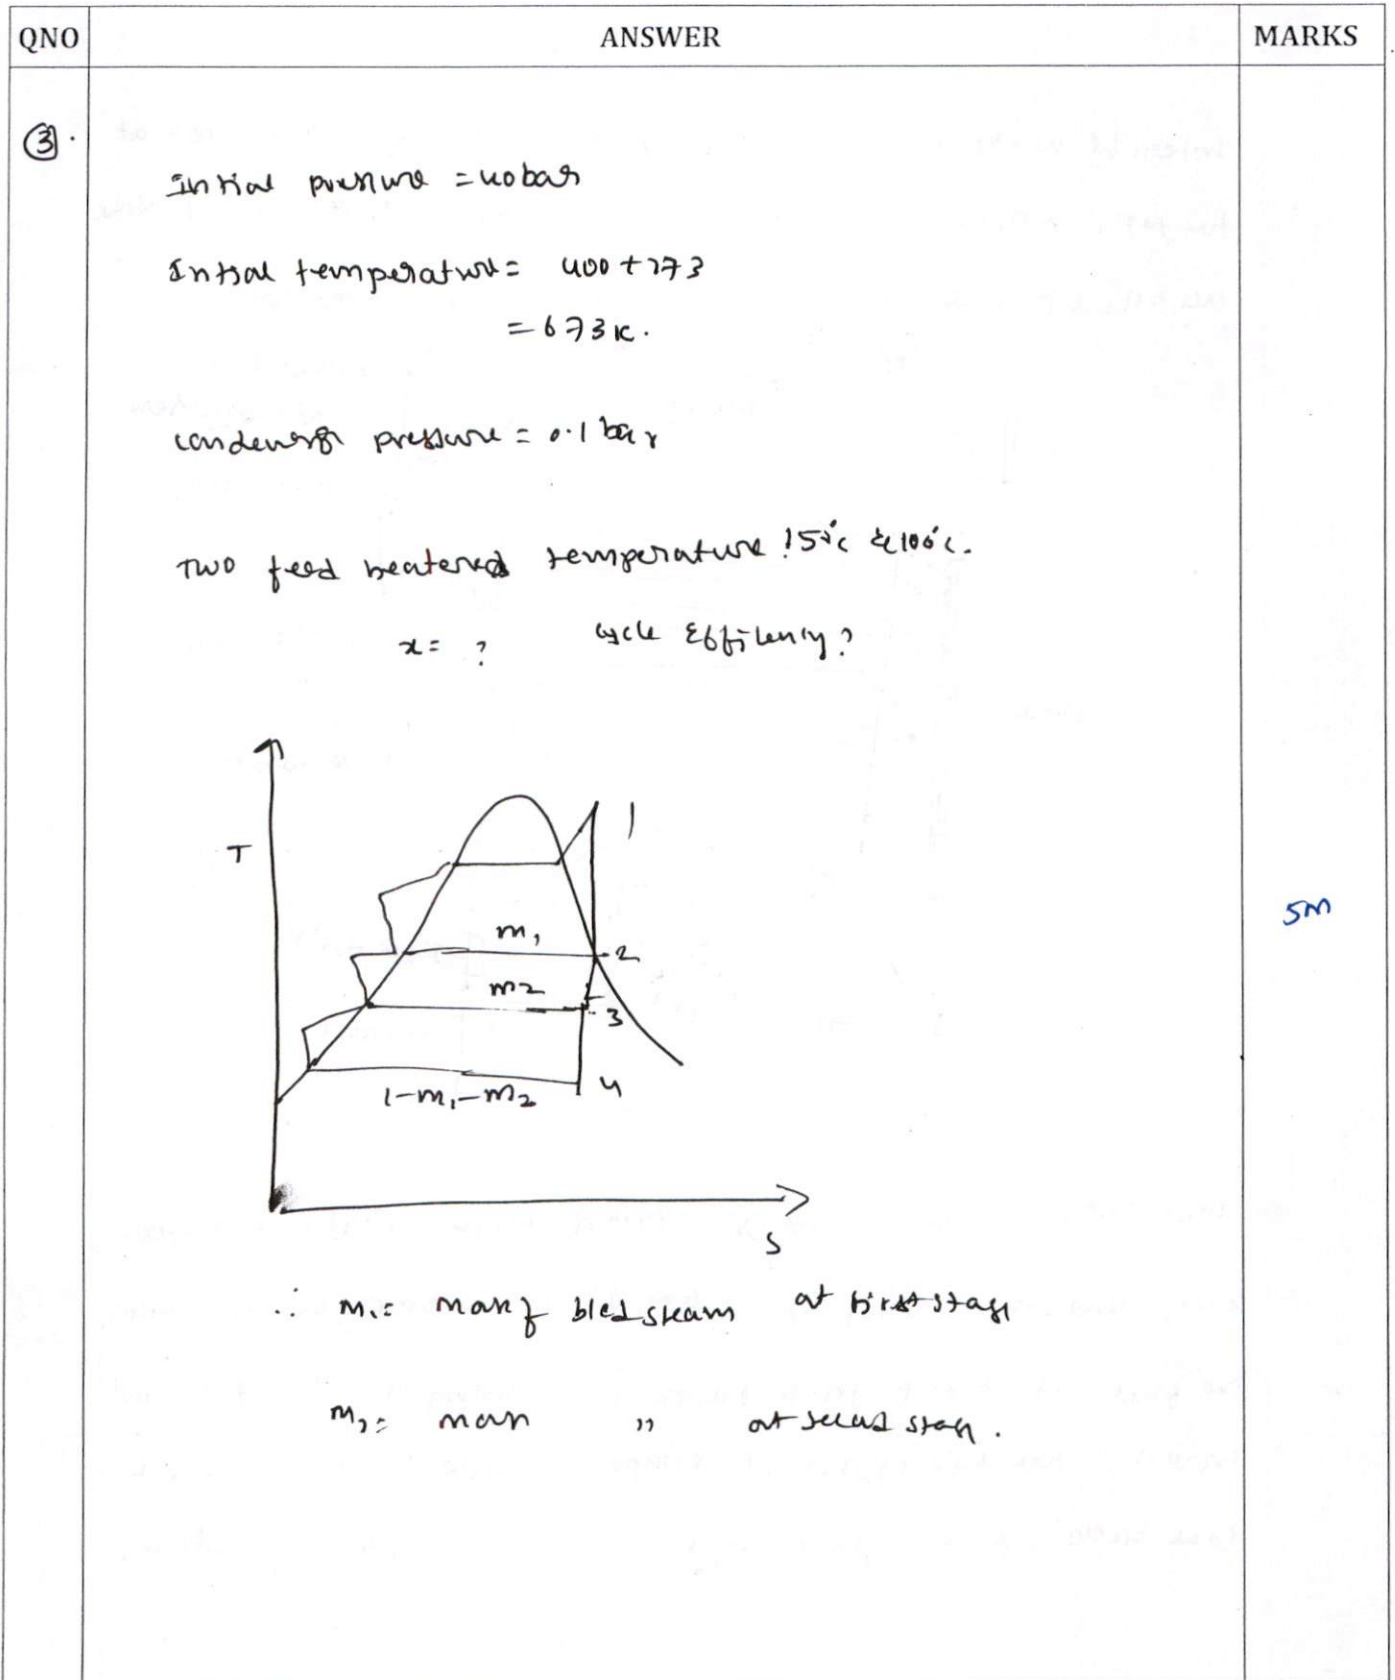 QNO ANSWER MARKS
③.
Initial pressure = 40 bar
Initial temperature = 400 + 273
= 673 K.
condensor pressure = 0.1 bar
Two feed heaters temperature 150°c & 100°c.
x = ? cycle Efficiency?
T
1
m1
2
5M
m2
3
1-m1-m2
4
S
∴ m1 = mass of bled steam at first stage
m2 = mass ,, at second stage.